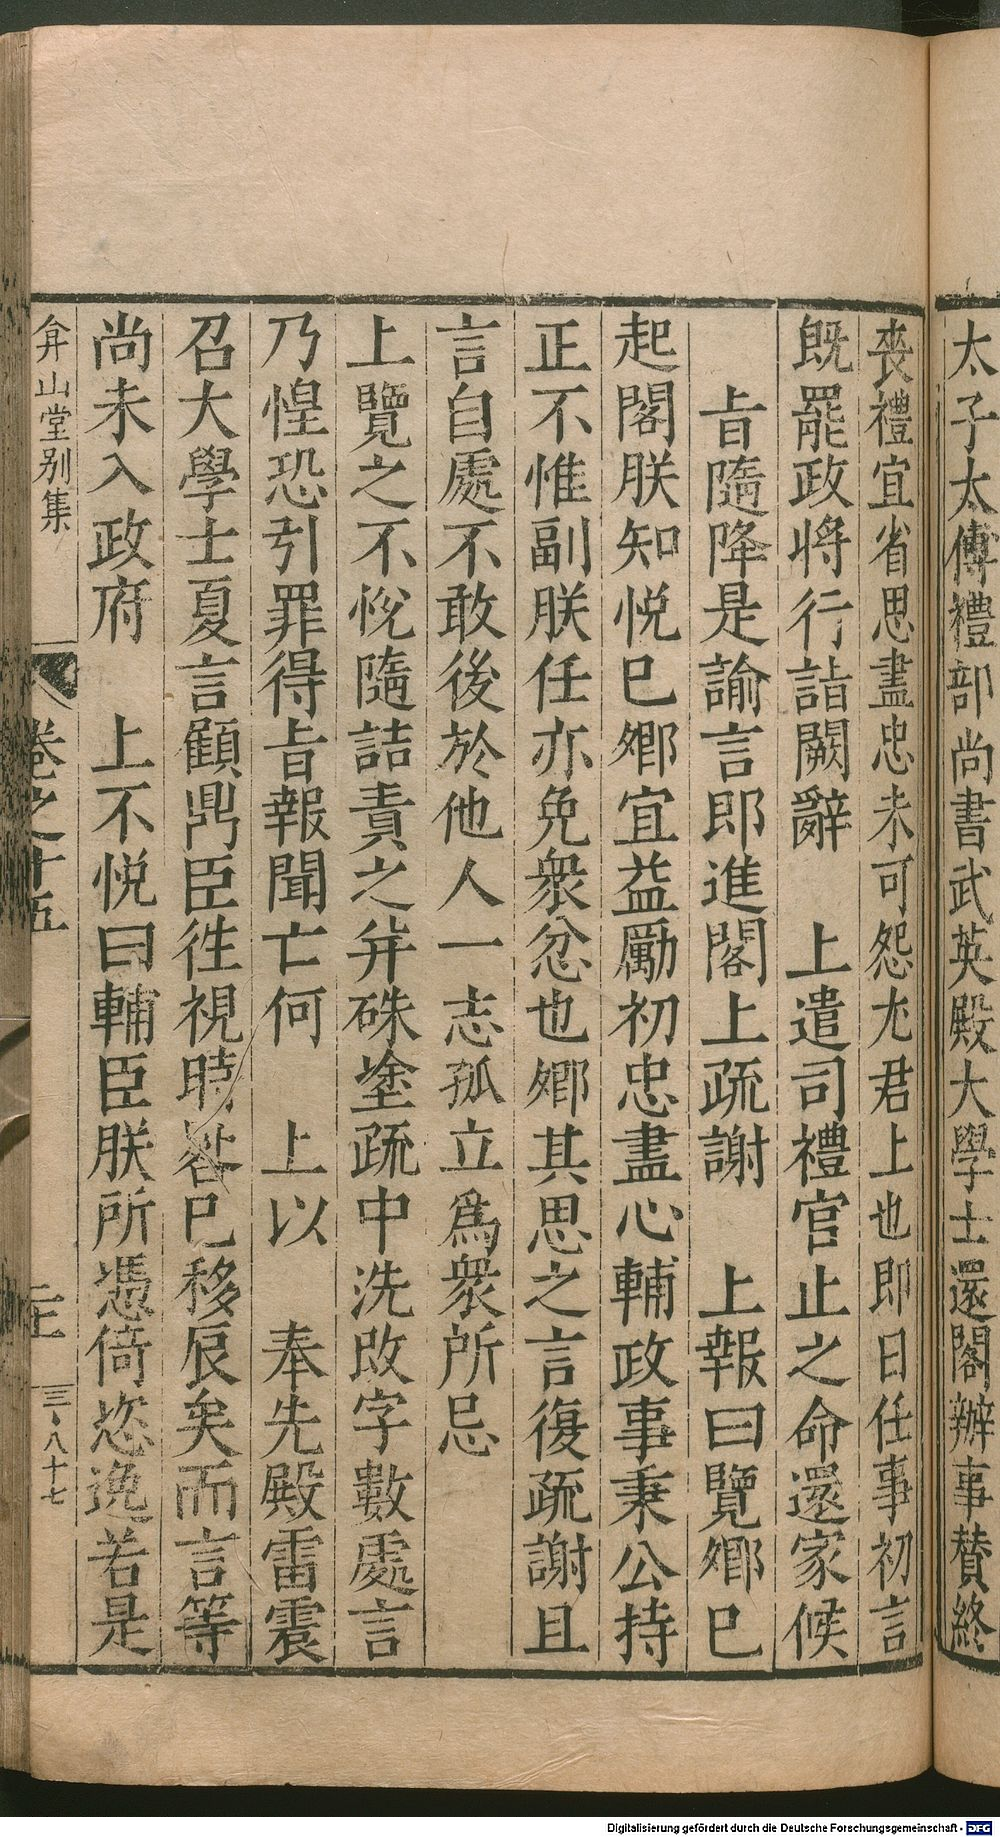 太子太傅禮部尚書武英殿大學士還閣辦事賛終
喪禮宜省思盡忠未可怨尤君上也即日任事初言
既罷政將行詣闕辭　上遣司禮官止之命還家候
旨隨降是諭言即進閣上疏謝　上報曰覽卿已
起閣朕知悅已卿宜益勵初忠盡心輔政事秉公持
正不惟副朕任亦免衆忿也卿其思之言復疏謝且
言自處不敢後於他人一志孤立爲衆所忌
上覽之不悅隨詰責之并硃塗疏中洗改字數處言
乃惶恐引罪得旨報聞亡何　上以　奉先殿雷震
召大學士夏言顧鼎臣徃視時晷已移辰矣而言等
尚未入政府　上不悅曰輔臣朕所憑倚恣逸若是
弇山堂别集　卷之十五　二十　三、八十七
Digitalisierung gefördert durch die Deutsche Forschungsgemeinschaft - DFG